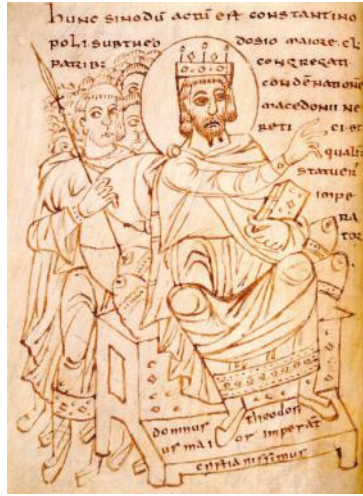 hunc sinodū actū est constantino
poli subtheo dosio maiore. cl
patrib: congregati
condēnatione
macedonii he
reti ci. et
qualit
statuerʼ
impe
ra
tor
domnus theodosi
us mai or imperat̄
cristianissimus